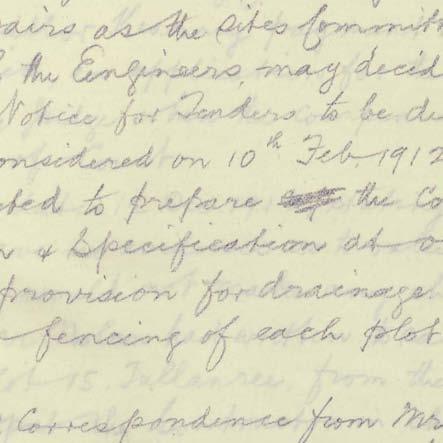 airs as the Sites Committ
the Eengineers, may decid
Notice for Tenders to be
onsidered on 10th Feb. 1912
ted to prepare the Co
& Specification at o
provision for drainage
fencing of each plot
Correspondence from Mr